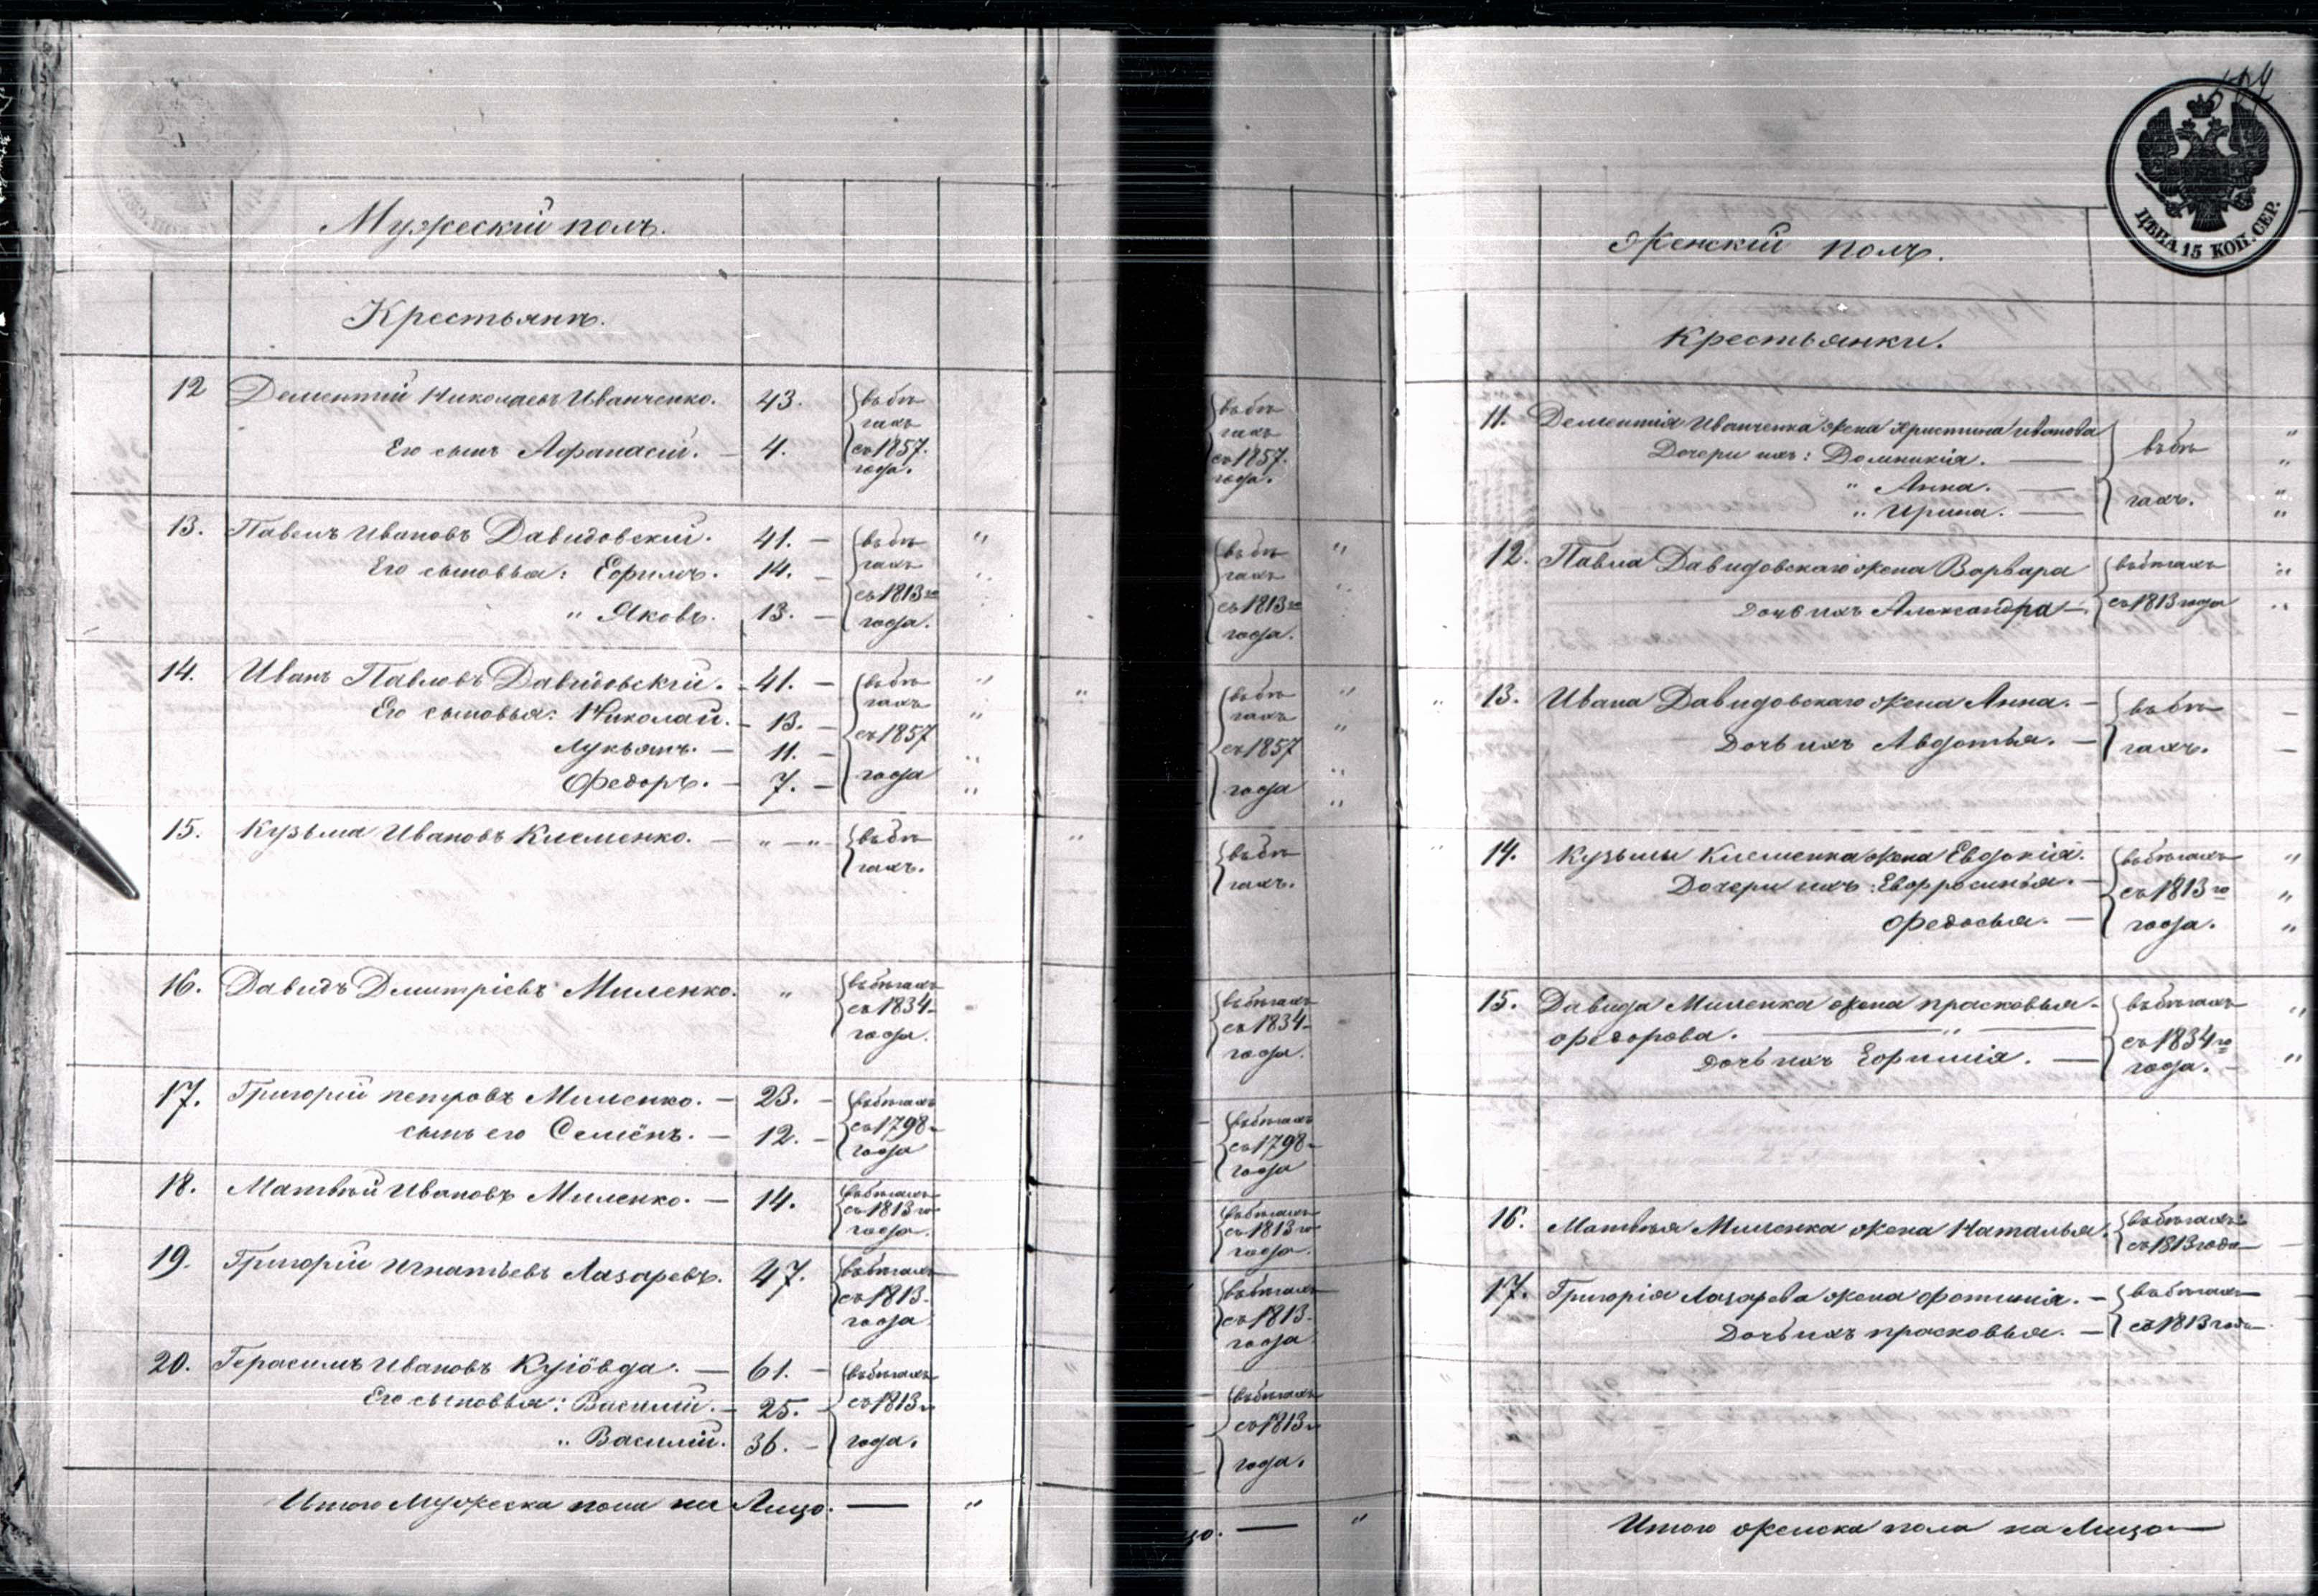 Мужескій полъ.
Крестьянъ.
12 Дементій Николаевъ Иванченко. 43. въ бѣ
гахъ
Его сынъ Афанасій. — 4. съ 1857.
года.
13. Павелъ Ивановъ Давидовскій. 41. — въ бѣ "
Его сыновья: Ефимъ. 14. — гахъ "
съ 1813 го
" Яковъ. 13. — года.
14. Иванъ Павловъ Давидовскій. 41. — въ бѣ "
гахъ
Его сыновья: Николай. — 13. — съ 1857 "
Лукьянъ. — 11. — "
Федоръ. — 7. — года "
15. Кузьма Ивановъ Клеменко. — " — " въ бѣ
гахъ.
16. Давидъ Дмитріевъ Миленко. " въ бѣгахъ
съ 1834
года.
17. Григорій Петровъ Миленко. — 23. — въ бѣгахъ
съ 1798
сынъ его Семёнъ. — 12. — года
18. Матвѣй Ивановъ Миленко. — 14. въ бѣгахъ
съ 1813 го
года.
19. Григорій Игнатьевъ Лазаревъ. 47. въ бѣгахъ
съ 1813.
года.
20. Герасимъ Ивановъ — 61. — въ бѣгахъ
Его сыновья: Василій. — 25. — съ 1813 го
" Василій. 36. — года.
Итого Мужеска пола на Лицо. — "
въ бѣ
гахъ
съ 1857.
года.
въ бѣ "
гахъ "
съ 1813 го
года.
" въ бѣ "
гахъ "
съ 1857
года "
" въ бѣ
гахъ.
въ бѣгахъ
съ 1834
года.
въ бѣгахъ
съ 1798
года
въ бѣгахъ
съ 1813 го
года.
въ бѣгахъ
съ 1813.
года
въ бѣгахъ
съ 1813 го
года.
цо. — "
ЦѢНА 15 КОП. СЕР.
Женскій полъ.
Крестьянки.
11. Дементія Иванченка жена Христина Иванова "
Дочери ихъ: Домникія. — въ бѣ "
" Анна. — гахъ. "
" Ирина. — "
12. Павла Давидовскаго жена Варвара въ бѣгахъ "
Дочь ихъ Александра — съ 1813 года "
13. Ивана Давидовскаго жена Анна. — въ бѣ —
Дочь ихъ Авдотья. — гахъ. —
14. Кузьмы Клеменка жена Евдокія. въ бѣгахъ "
Дочери ихъ: Евфросинья. — съ 1813 го "
Федосья. — года. "
15. Давида Миленка жена Прасковья — въ бѣгахъ "
Федорова. — " — съ 1834 го
Дочь ихъ Ефимія. — года. — "
16. Матвѣя Миленка жена Наталья. въ бѣгахъ
съ 1813 года
17. Григорія Лазарева жена Фотинія. — въ бѣгахъ
Дочь ихъ Прасковья. — съ 1813 года
Итого женска пола на Лицо —